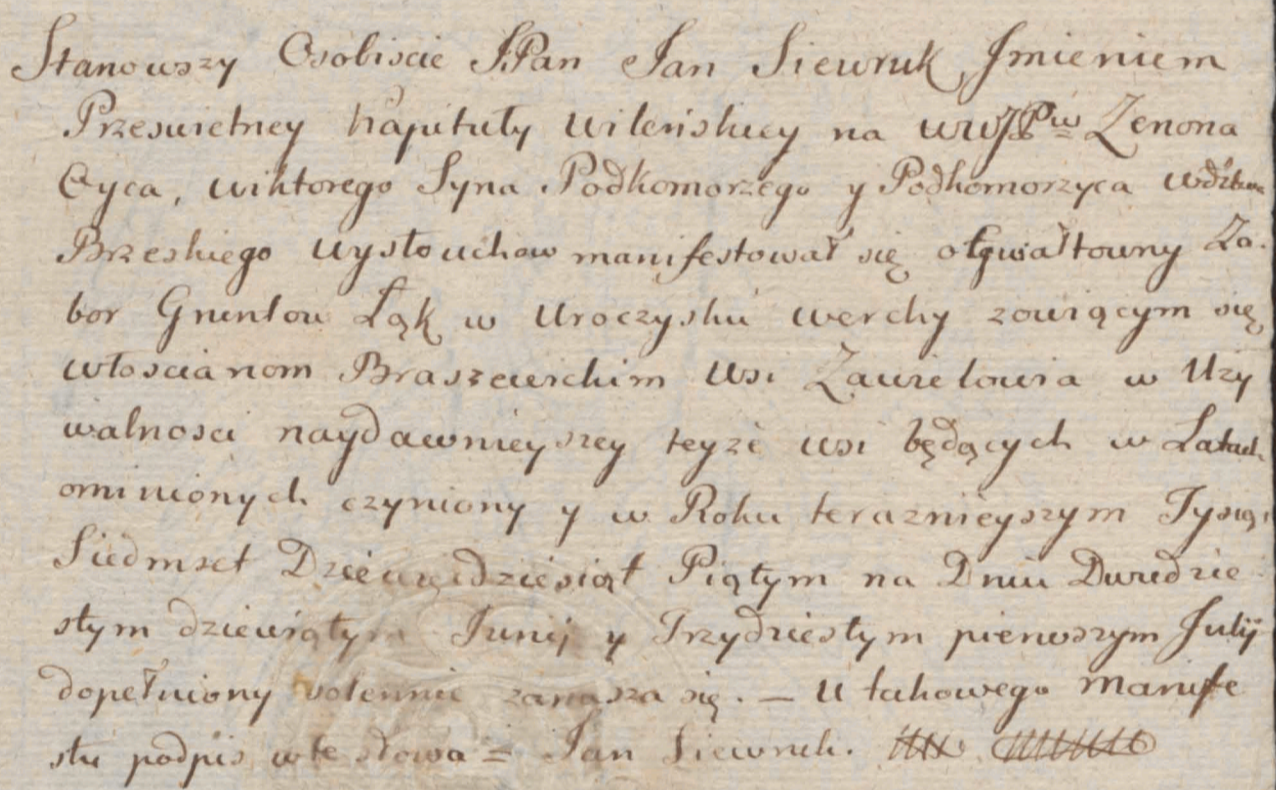 Stanowszy Osobiscie J.Pan Jan Siewruk, Jmieniem
Przeswietney Kapituły Wileńskiey na WWJPw Zenona
Oyca, Wiktorego Syna Podkomorzego y Podkomorzyca
Brzeskiego Wysłouchow manifestował się o gwałtowny Za-
bor Gruntow Łąk w Uroczysku Werchy zowiącym się
Włoscianom Braszewickim Wsi Zawielowia w Uzy
walnosci naydawnieyszey teyze Wsi będących w Latach
ominionych czyniony y w Roku teraznieyszym Tysiąc
Siedmset Dziewiędziesiąt Piątym na Dniu Dwudzie-
stym dziewiątym Junij y Trzydziestym pierwszym Julij
dopełniony solennie zanasza się. – U takowego Manife
stu podpis w te słowa = Jan Siewruk.